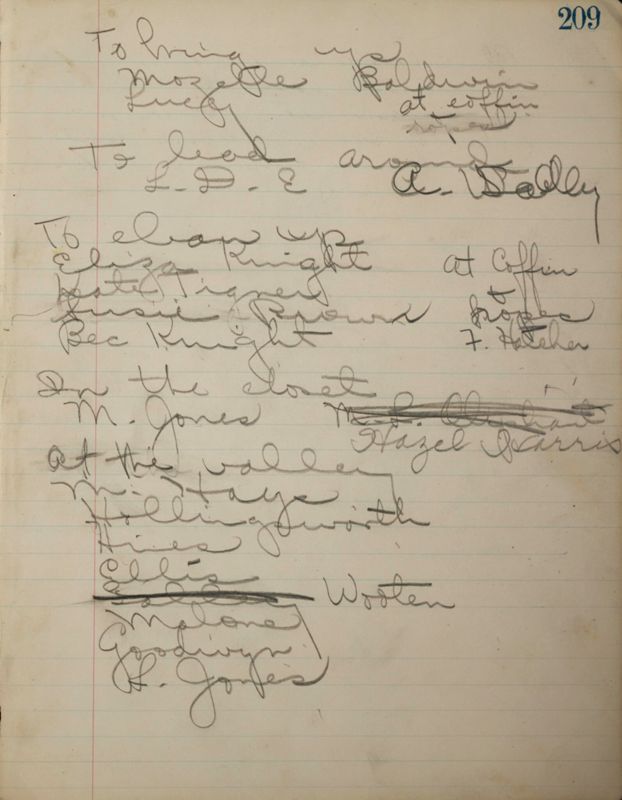 209
To bring up
Mozelle Baldwin
Lucy at coffin
ropes
To lead around
L. D. E A. Badley
To clean up
Eliza Knight at Coffin
Kate Tigner +
Susie Brown Ropes
Bec Knight F. Hatcher
In the closet
M. Jones M. L. Oliphant
Hazel Harris
At the valley
M. Hays
Hollingsworth
Hines
Ellis
Wooten
Malone
Goodwyn
L. Jones